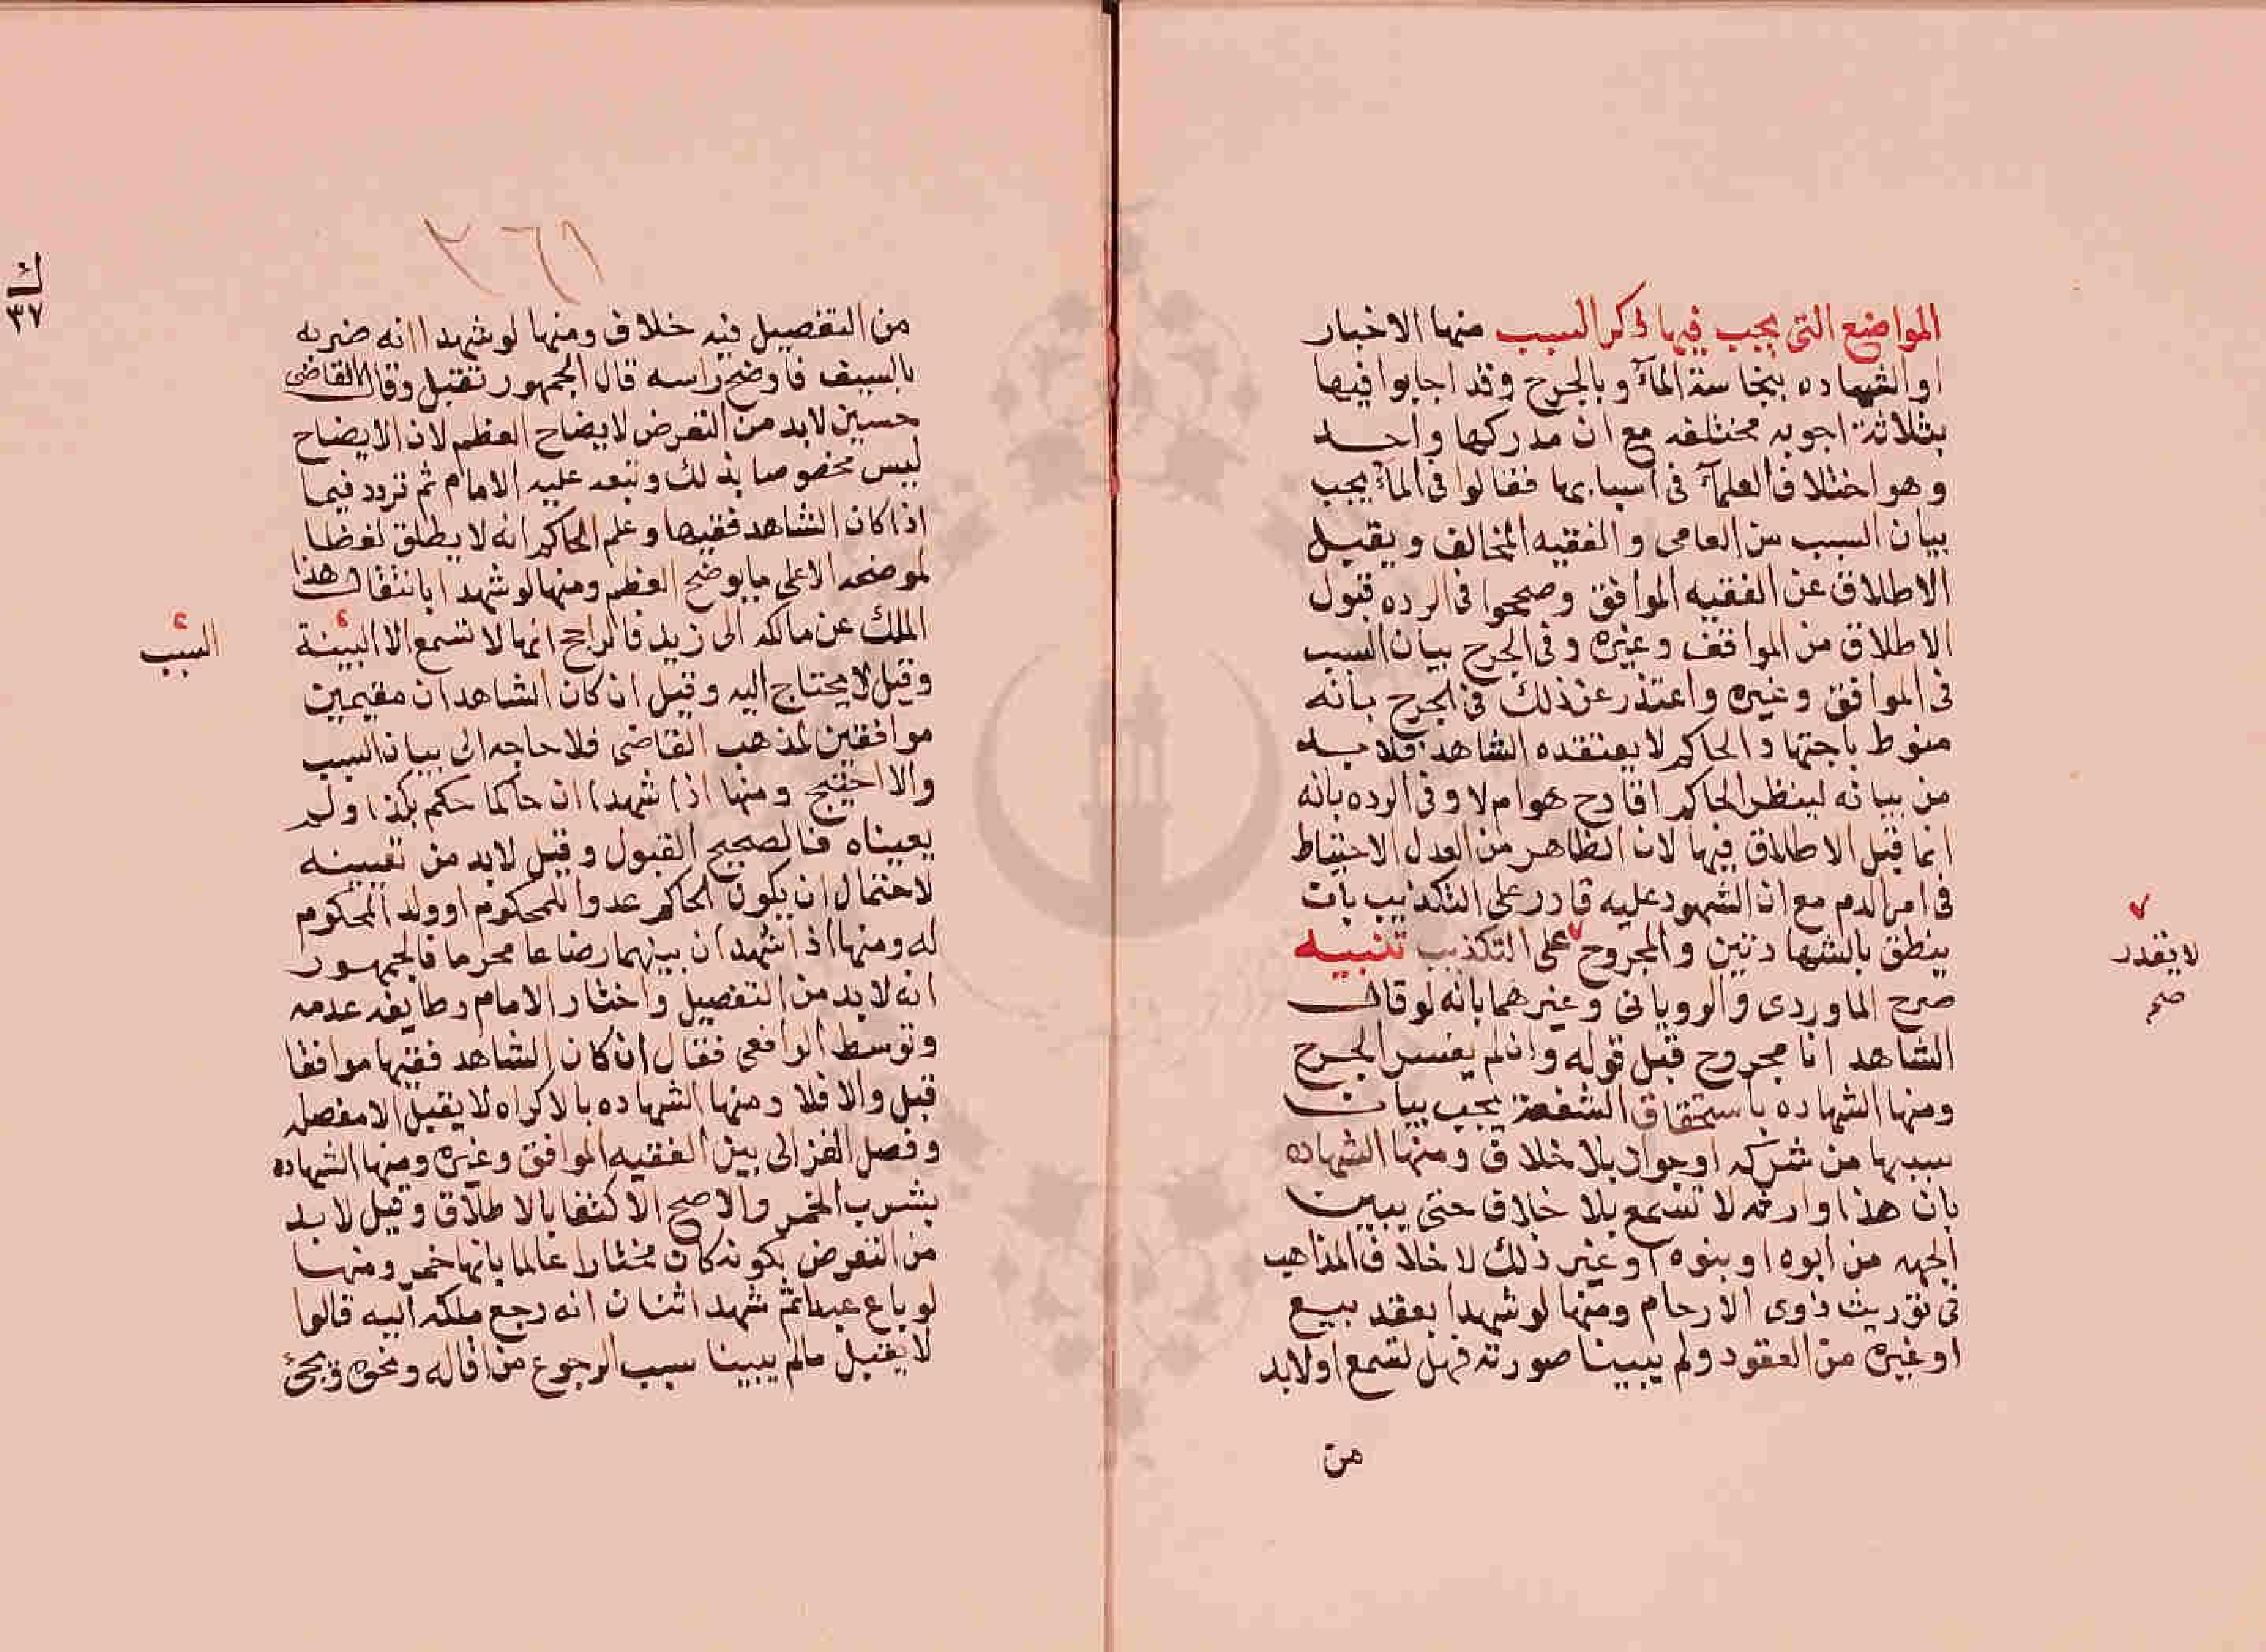 المواضع التى يجب فيها ذكر السبب منها الاخبار
او الشهاده بنجاسة المآء وبالجرح وقد اجابوا فيها
بثلاثة اجوبه مختلفه مع ان مدركها واحد
وهو اختلاف العلمآء فى اسبابها فقالوا فى المآء يجب
بيان السبب من العامى والفقيه المخالف ويقبل
الاطلاق عن الفقيه الموافق وصححوا فى الرده قبول
الاطلاق من الموافف وغيره وفى الجرح بيان السبب
فى الموافق وغيره واعتذر عن ذلك فى الجرح بانه
منوط باجتهاد الحاكم لا يعتقده الشاهد فلا بد
من بيانه لينظر الحاكم اقادح هو ام لا وفى الرده بانه
انما قبل الاطلاق فيها لان الظاهر من العدل الاحتياط
فى امر الدم مع ان الشهود عليه قادر على التكذيب بان
ينطق بالشهادتين والمجروح على التكذيب تنبيه
لا يقدر
صح
صرح الماوردى والرويانى وغيرهما بانه لو قال
الشاهد انا مجروح قبل قوله وان لم يفسر الجرح
ومنها الشهاده باستحقاق الشفعة يجب بيان
سببها من شركه او جوار بلا خلاف ومنها الشهاده
بان هذا وارثه لا تسمع بلا خلاف حتى يبين
الجهه من ابوه او بنوه او غير ذلك لاختلاف المذاهب
فى توريث ذوى الارحام ومنها لو شهدا بعقد بيع
او غيره من العقود ولم يبينا صورته فهل تسمع او لابد
من
٣٦١
ك
٣٧
من التفصيل فيه خلاف ومنها لو شهدا انه ضربه
بالسيف فاوضح راسه قال الجمهور تقبل وقال القاضى
حسين لابد من التعرض لايضاح العظم لان الايضاح
ليس مخصوصا بذلك وتبعه عليه الامام ثم تردد فيما
اذا كان الشاهد فقيها وعلم الحاكم انه لا يطلق لفظ
الموضحه الا على ما يوضح العظم ومنها لو شهدا بانتقال هذا
الملك عن مالكه الى زيد فالراجح انها لا تسمع الا البينة
السبب
وقيل لا يحتاج اليه وقيل ان كان الشاهدان مقيمين
موافقين لمذهب القاضى فلا حاجه الى بيان السبب
والا احتيج ومنها اذا شهدا ان حاكما حكم بكذا ولم
يعيناه فالصحيح القبول وقيل لابد من تعيينه
لاحتمال ان يكون الحاكم عدوا للمحكوم او ولد المحكوم
له ومنها اذا شهد ان بينهما رضاعا محرما فالجمهور
انه لا بد من التفصيل واختار الامام وطايفه عدمه
وتوسط الرافعى فقال ان كان الشاهد فقيها موافقا
قبل والا فلا ومنها الشهاده بالاكراه لا يقبل الا مفصله
وفصل الغزالى بين الفقيه الموافق وغيره ومنها الشهاده
بشرب الخمر والاصح الاكتفا بالاطلاق وقيل لا بد
من التعرض بكونه كان مختارا عالما بانها خمر ومنها
لو باع عبدا ثم شهد اثنان انه رجع ملكه اليه قالوا
لا يقبل مالم يبينا سبب الرجوع من اقاله ونحوه ويجئ